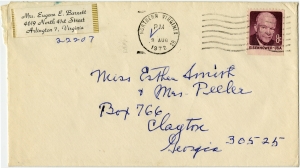 Mrs. Eugene E. Barnett
4819 North 41st Street
Arlington 7, Virginia
22207
NORTHERN VIRGINIA
PM
AUG
1972
EISENHOWER · USA
Miss Esther Smith
& Mrs. Peeler
Box 766
Clayton
Georgia 30525